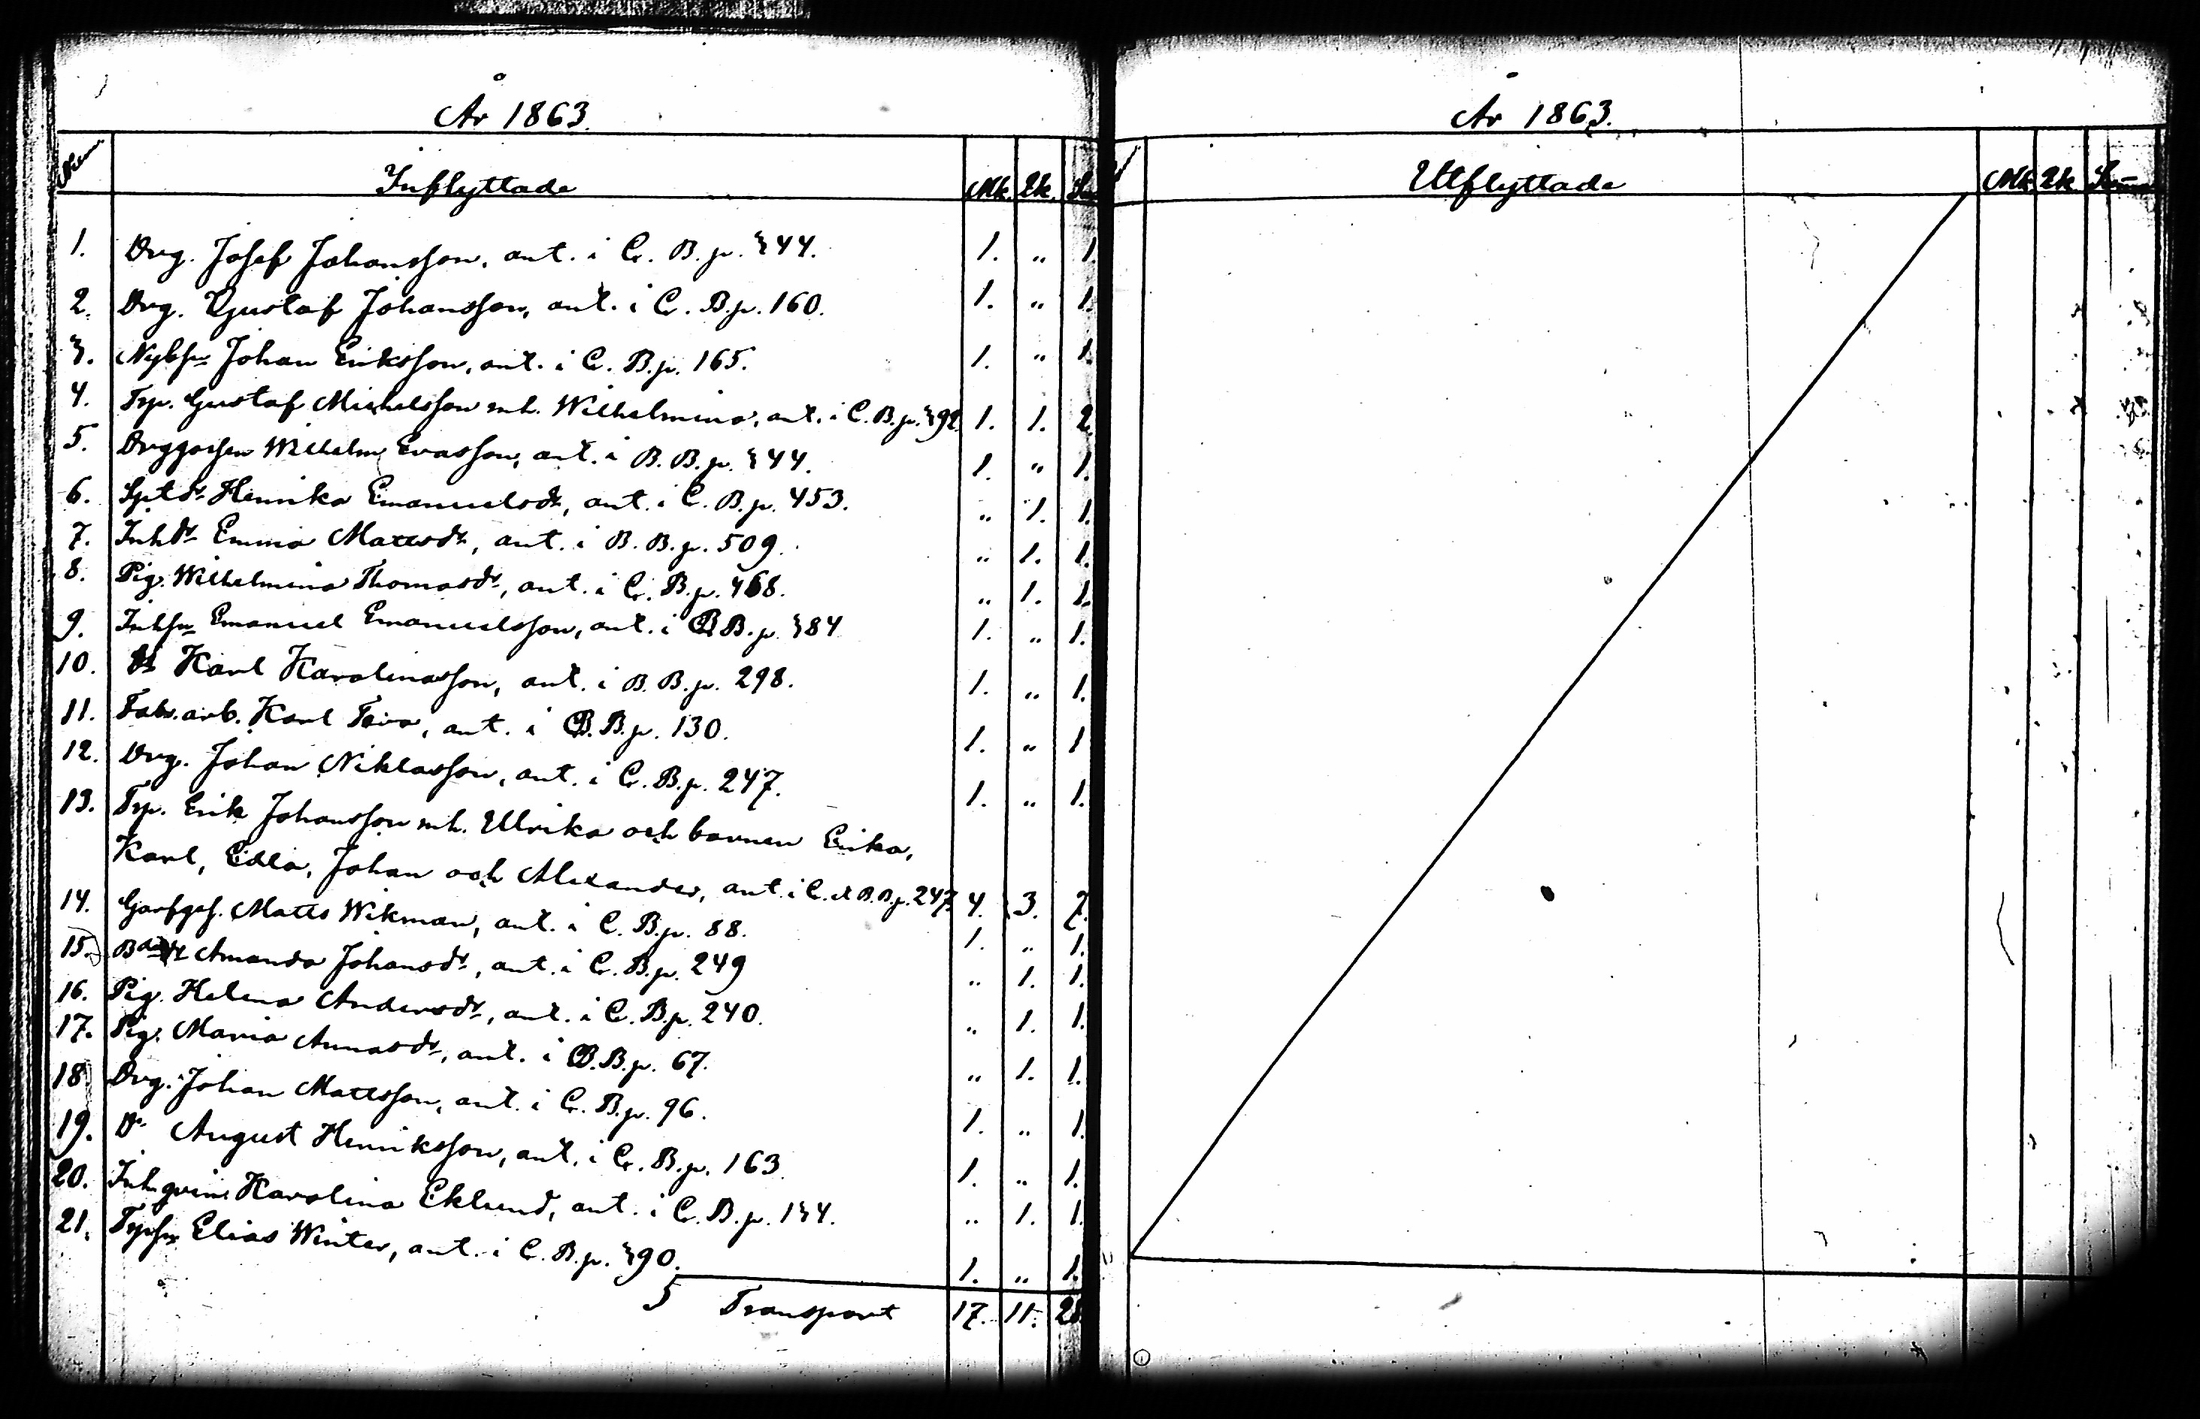 År 1863.
Num Inflyttade Mk. Qk. Su
1. Drg. Josef Johansson, ant. i C. B. p. 344. 1. „ 1.
2. Drg. Gustaf Johansson, ant. i C. B. p. 160. 1. „ 1.
3. Nybsn Johan Eriksson, ant. i C. B. p. 165. 1. „ 1.
4. Trp. Gustaf Michelsson m.h. Wilhelmina, ant. i C. B. p. 392. 1. 1. 2.
5. Drggossen Wilhelm Evasson, ant. i B. B. p. 344. 1. „ 1.
6. Sptdr Henrika Emanuelsdr, ant. i C. B. p. 453. „ 1. 1.
7. Inhdr Emma Mattsdr, ant. i B. B. p. 509. „ 1. 1.
8. Pig. Wilhelmina Thomasdr, ant. i C. B. p. 468. „ 1. 1.
9. Inhsn Emanuel Emanuelsson, ant. i B. B. p. 384 1. „ 1.
10. Karl Karolinasson, ant. i B. B. p. 298. 1. „ 1.
11. Fabr. arb. Karl Toivo, ant. i B. B. p. 130. 1. „ 1
12. Drg. Johan Niklasson, ant. i C. B. p. 247. 1. „ 1.
13. Trp. Erik Johansson m.h. Ulrika och barnen Erika,
Karl, Edla, Johan och Alexander, ant. i C. et B. B. p. 247. 4. 3. 7.
14. Garfges. Matts Wikman, ant. i C. B. p. 88. 1. „ 1.
15. Amanda Johansdr, ant. i C. B. p. 249 „ 1. 1.
16. Pig. Helena Andersdr, ant. i C. B. p. 240. „ 1. 1.
17. Pig. Maria Annasdr, ant. i B. B. p. 67. „ 1. 1.
18. Drg. Johan Mattsson, ant. i C. B. p. 96. 1. „ 1.
19. Do August Henriksson, ant. i C. B. p. 163 1. „ 1.
20. Inhqvin. Karolina Eklund, ant. i C. B. p. 134. „ 1. 1.
21. Trpsn Elias Winter, ant. i C. B. p. 390. 1. „ 1.
Transport 17. 11. 28
År 1863.
Utflyttade Mk. Qk. Summa